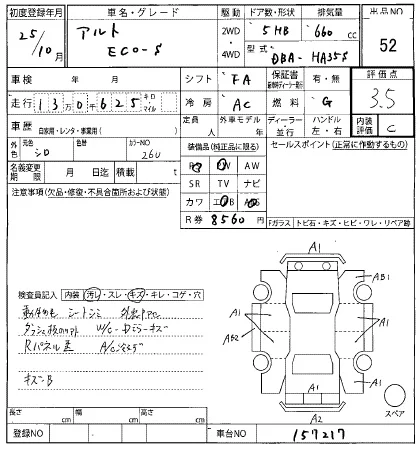 初度登録年月 車名・グレード 駆動 ドア数・形状 排気量 出品NO
25年 10月 アルト ECO-S 2WD ・ 4WD 5HB 660 cc 52
型式 DBA-HA35S
車検 年 月 シフト FA 保証書 有・無 評価点
走行 13万0千625 キロ・マイル 冷房 AC 燃料 G 3.5
車歴 自家用・レンタ・事業用( ) 定員 人 外車モデル 年 ディーラー・並行 ハンドル 左・右 内装評価 C
色 元色 シロ 色替 カラーNO 26U 装備品(純正品に限る) セールスポイント(正常に作動するもの)
名義変更期限 月 日迄 積載 t
PS PW AW
SR TV ナビ
カワ エアB ABS
R券 8560 円
注意事項(欠品・修復・不具合箇所および状態)
Fガラス トビ石・キズ・ヒビ・ワレ・リペア跡
A1
A1 AB1
AB2 A1 A1 A1
A1 A1 A1
A2
スペア
検査員記入 内装 汚レ・スレ・キズ・キレ・コゲ・穴
シートシミ
W/C-Dミラーキズ
Rパネル
キズ-B
長さ cm 幅 cm 高さ cm
登録NO 車台NO 157217